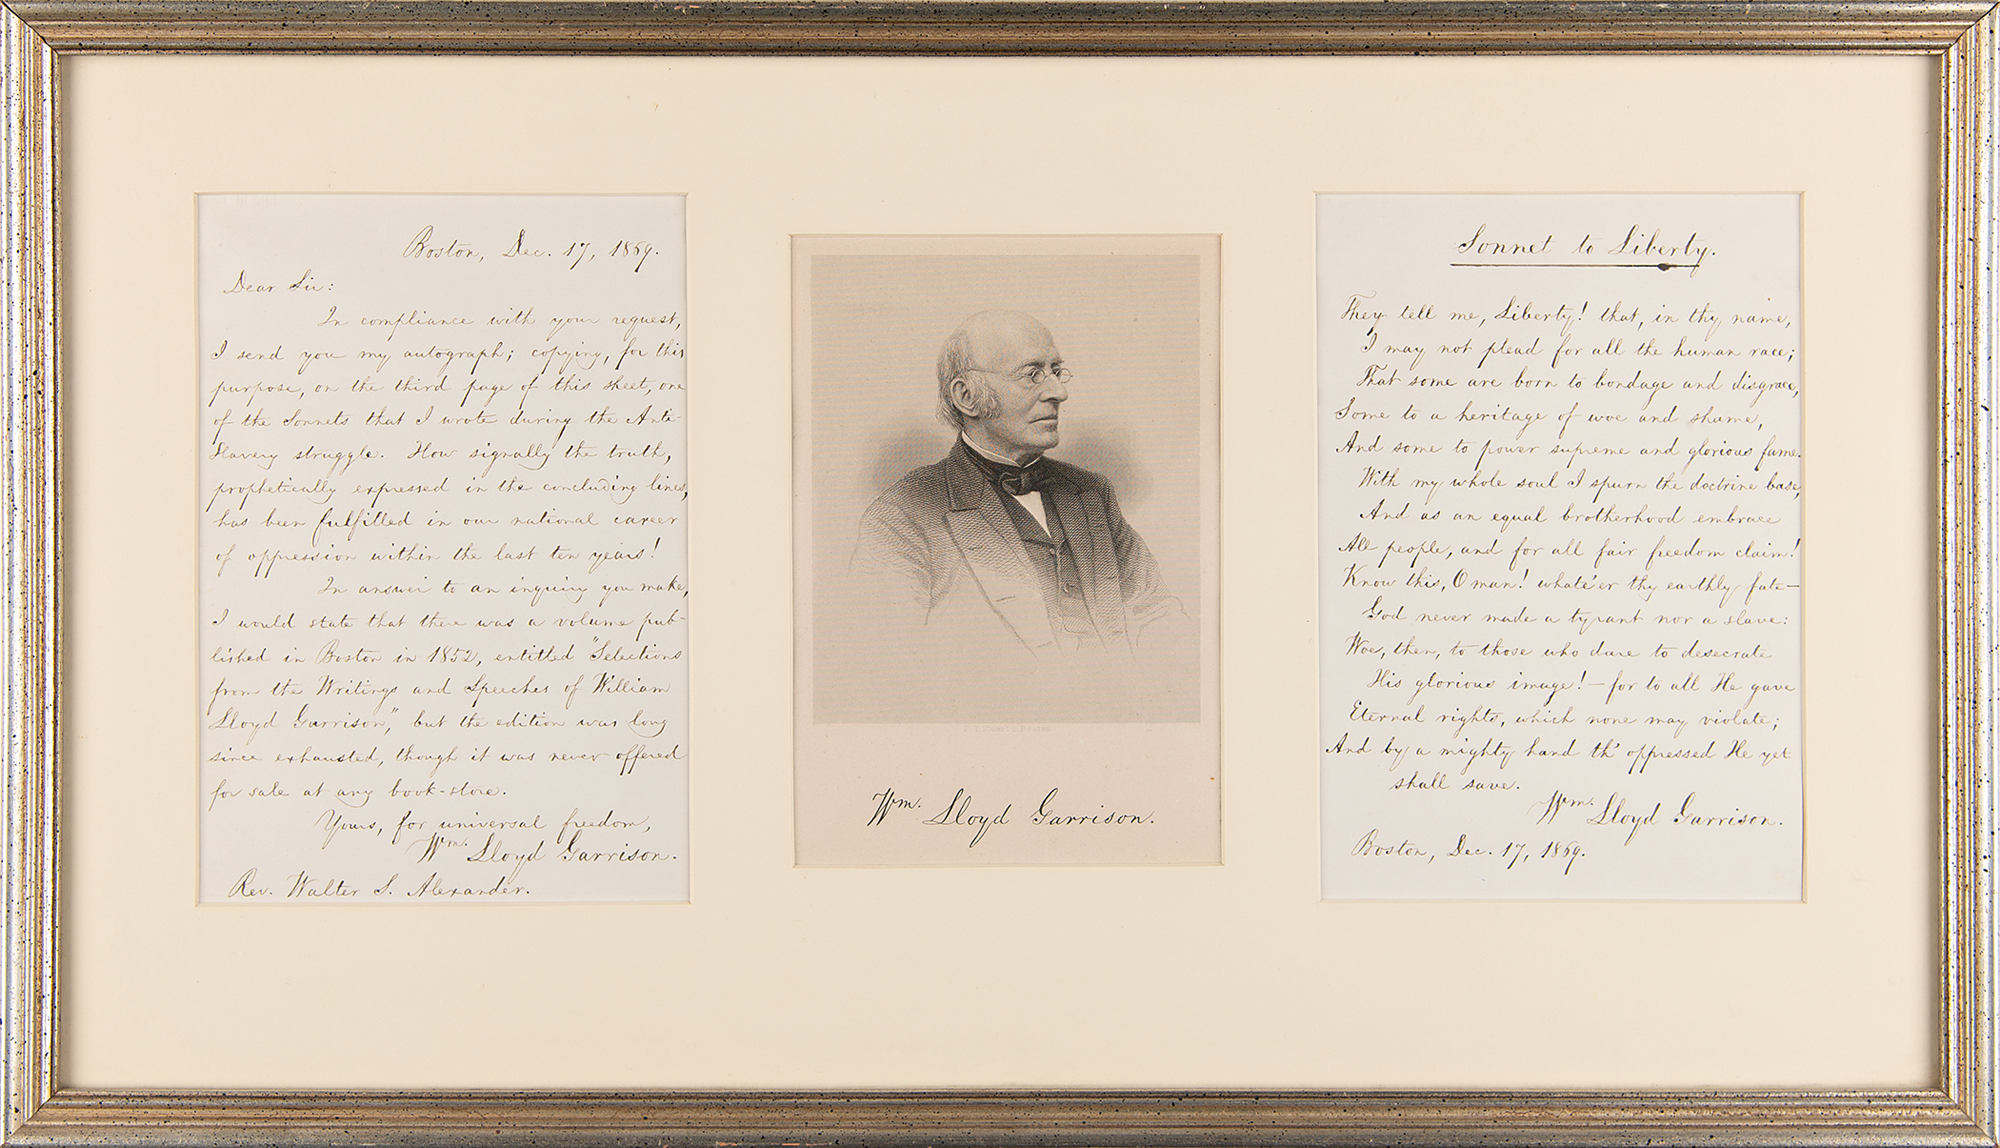 Boston, Dec. 17, 1869.
Dear Sir:
In compliance with your request,
I send you my autograph; copying, for this
purpose, on the third page of this sheet, one
of the Sonnets that I wrote during the Anti-
Slavery struggle. How signally the truth,
prophetically expressed in the concluding lines,
has been fulfilled in our national career
of oppression within the last ten years!
In answer to an inquiry you make,
I would state that there was a volume pub-
lished in Boston in 1852, entitled "Selections
from the Writings and Speeches of William
Lloyd Garrison," but the edition was long
since exhausted, though it was never offered
for sale at any book-store.
Yours, for universal freedom,
Wm. Lloyd Garrison.
Rev. Walter S. Alexander.
Wm. Lloyd Garrison.
Sonnet to Liberty.
They tell me, Liberty! that, in thy name,
I may not plead for all the human race;
That some are born to bondage and disgrace,
Some to a heritage of woe and shame,
And some to power supreme and glorious fame.
With my whole soul I spurn the doctrine base,
And as an equal brotherhood embrace
All people, and for all fair freedom claim!
Know this, O man! whate'er thy earthly fate—
God never made a tyrant nor a slave:
Woe, then, to those who dare to desecrate
His glorious image!—for to all He gave
Eternal rights, which none may violate;
And by a mighty hand th' oppressed He yet
shall save.
Wm. Lloyd Garrison.
Boston, Dec. 17, 1869.